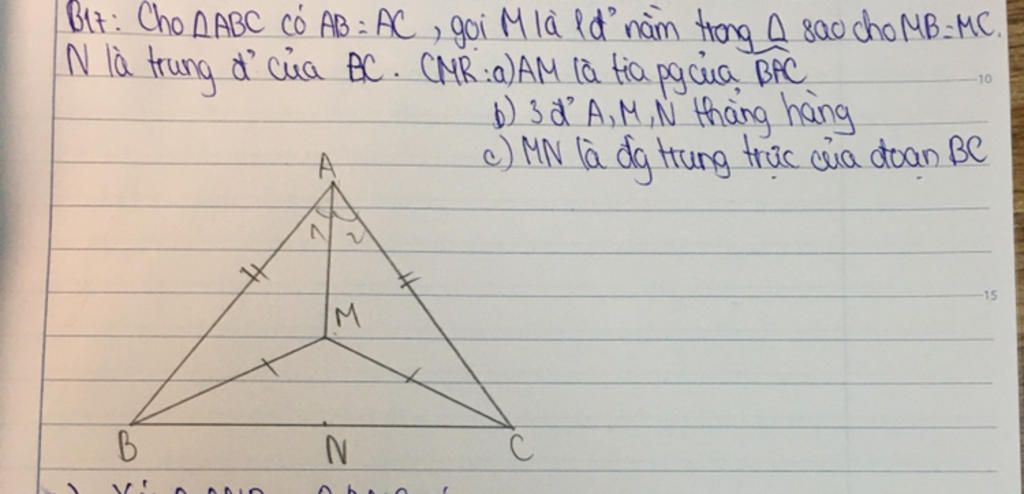 B17: Cho ΔABC có AB = AC, gọi M là 1 đ' nằm trong Δ sao cho MB = MC.
N là trung đ' của BC. CMR: a) AM là tia pg của BAC
10
b) 3 đ' A, M, N thẳng hàng
c) MN là đg trung trực của đoạn BC
A
1 2
M
15
B N C